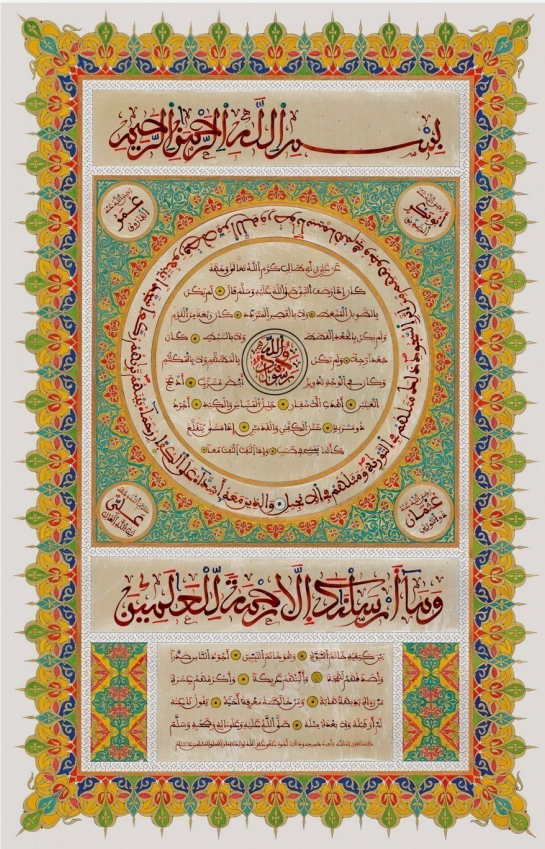 بسم الله الرحمن الرحيم
أبو بكر
عمر
والذين معه أشداء على الكفار رحماء بينهم تراهم ركعا سجدا يبتغون فضلا من الله ورضوانا سيماهم في وجوههم من أثر السجود ذلك مثلهم في التوراة ومثلهم في الإنجيل
عن علي بن أبي طالب كرم الله تعالى وجهه
كان إذا وصف النبي صلى الله عليه وسلم قال لم يكن
بالطويل الممغط ولا بالقصير المتردد كان ربعة من القوم
ولم يكن بالجعد القطط ولا بالسبط كان
جعدا رجلا ولم يكن بالمطهم ولا بالمكلثم
محمد رسول الله
وكان في الوجه تدوير أبيض مشرب أدعج
العينين أهدب الأشفار جليل المشاش والكتد أجرد
ذو مسربة شثن الكفين والقدمين إذا مشى يتقلع
كأنما يمشي في صبب وإذا التفت التفت معا
عثمان
علي
وما أرسلناك إلا رحمة للعالمين
بين كتفيه خاتم النبوة وهو خاتم النبيين أجود الناس صدرا
وأصدقهم لهجة وألينهم عريكة وأكرمهم عشرة
من رآه بديهة هابه ومن خالطه معرفة أحبه يقول ناعته
لم أر قبله ولا بعده مثله صلى الله عليه وعلى آله وصحبه وسلم